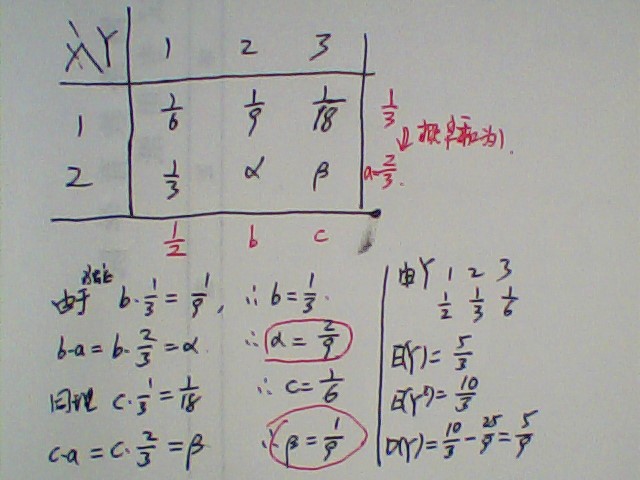 X\Y 1 2 3
1 1/6 1/9 1/18 1/3
↓概率和为1.
2 1/3 α β a=2/3.
1/2 b c
由于 b·1/3=1/9, ∴b=1/3.
b·a=b·2/3=α. ∴α=2/9
同理 c·1/3=1/18 ∴c=1/6
c·a=c·2/3=β ∴β=1/9
由Y 1 2 3
1/2 1/3 1/6
E(Y)=5/3
E(Y²)=10/3
D(Y)=10/3-25/9=5/9